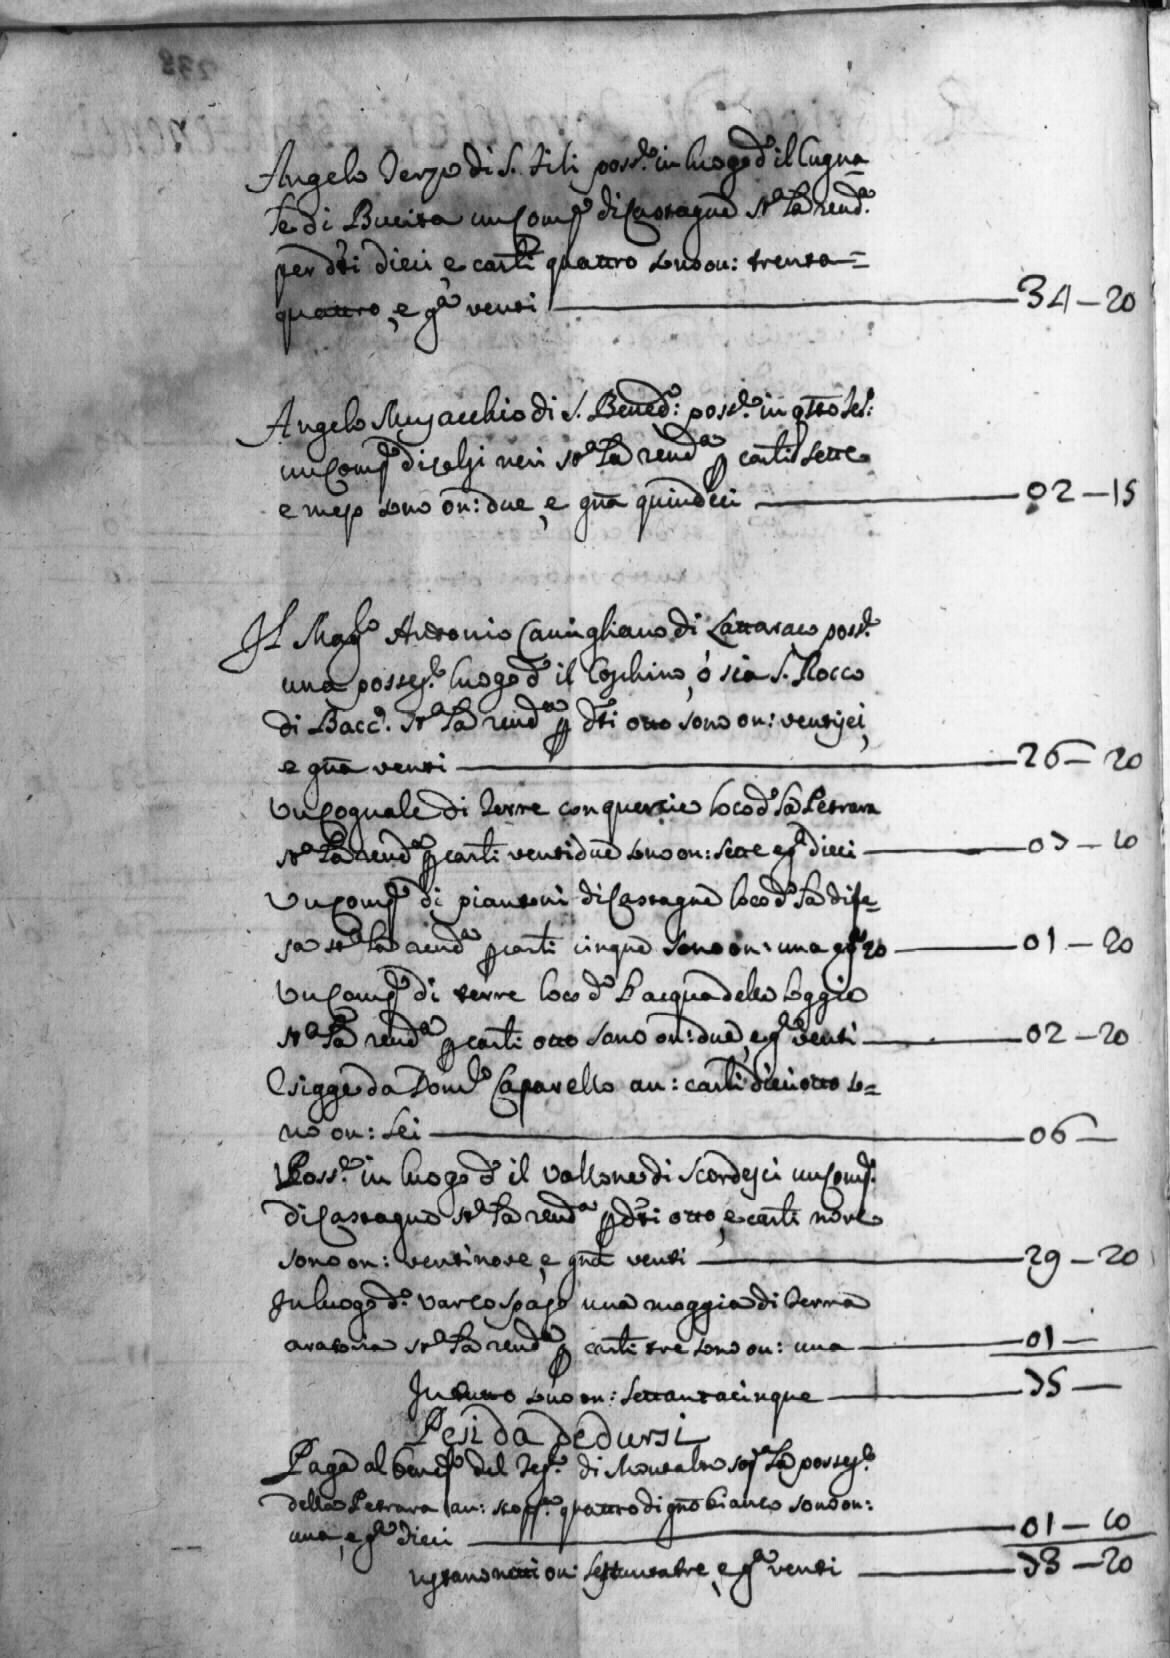 Angelo Terzo di S. Sisti poss.e in luogo d.o il Cugna=
le di Bucita un Comp.o di Castagne st.a la rend.a
per d.ti dieci, e carl.i quattro sono on: trenta=
quattro, e g.a venti — 34 – 20
Angelo Musacchio di S. Bened.o: poss.e in q.tro Ter:
un Comp.o di Celsi neri st.a la rend.a p carl.i sette
e mezo sono on: due, e gna quindeci — 02 – 15
Il Mag.co Antonio Cavigliano di Lattaraco poss.e
una posses.e luogo d.o il Coschino, ò sia S. Rocco
di Bacc.o st.a la rend.a p d.ti otto sono on: ventisei,
e gna venti — 26 – 20
Un Cognale di terre con quercie loco d.o la Petrara
st.a la rend.a p carl.i ventidue sono on: sette e g.a dieci — 07 – 10
Un Comp.o di piantoni di Castagne loco d.o la dife=
sa st.a la rend.a p carl.i cinque sono on: una e g.a 20 — 01 – 20
Un Comp.o di terre loco d.o l'acqua delle loggie
st.a la rend.a p carl.i otto sono on: due, e g.a venti — 02 – 20
Esigge da Dom.co Caparello an: carl.i dieciotto so=
no on: sei — 06 —
Poss.e in luogo d.o il Vallone di Scordesci un Comp.o
di Castagne st.a la rend.a p d.ti otto, e carl.i nove
sono on: ventinove, e gna venti — 29 – 20
In luogo d.o Varco spaso una moggia di terra
aratoria st.a la rend.a p carl.i tre sono on: una — 01 —
In tutto sono on: settantacinque — 75 —
Pesi da dedursi
Paga al Benef.o del Tes.o di Montalto sop.a la posses.e
della Petrara an: stopp.a quattro di gno bianco sono on:
una, e g.a dieci — 01 – 10
restano netti on: settantatre, e g.a venti — 73 – 20